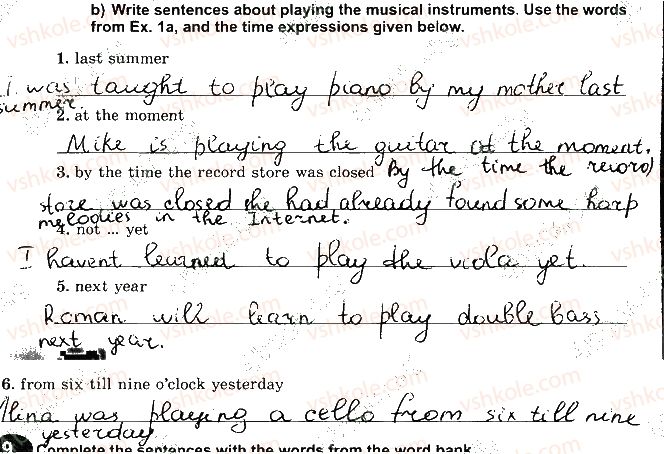 b) Write sentences about playing the musical instruments. Use the words
from Ex. 1a, and the time expressions given below.
1. last summer
I was taught to play piano by my mother last
summer
2. at the moment
Mike is playing the guitar at the moment.
3. by the time the record store was closed By the time the record
store was closed she had already found some harp
melodies in the Internet.
4. not ... yet
I havent learned to play the viola yet.
5. next year
Roman will learn to play double bass
next year.
6. from six till nine o'clock yesterday
Alina was playing a cello from six till nine
yesterday
9 Complete the sentences with the words from the word bank